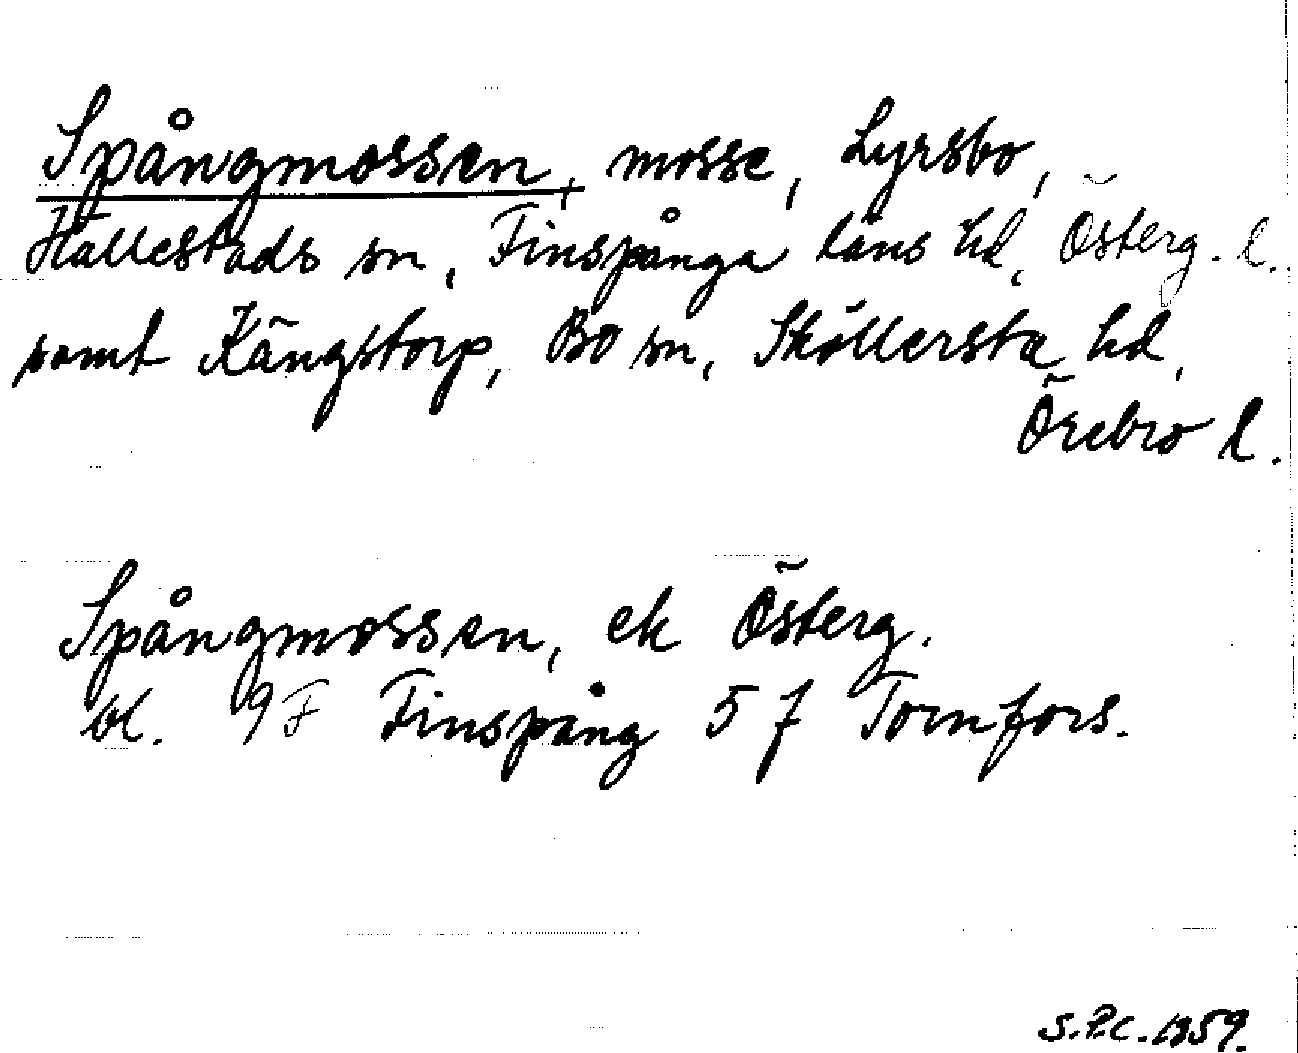 Spångmossen, mosse, Lyrsbo,
Hällestads sn, Finspånga läns hd, Österg. l.
samt Kängstorp, Bo sn, Sköllersta hd,
Örebro l.
Spångmossen, ek Österg.
bl. 9F Finspång 5 f Tornfors.
S.P.C. 1959.